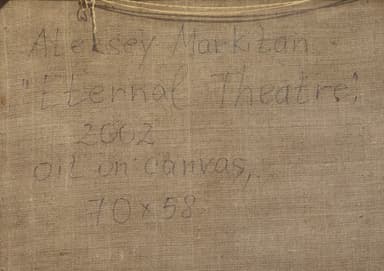 Aleksey Markitan.
"Eternal Theatre".
2002
oil on canvas,
70 x 58